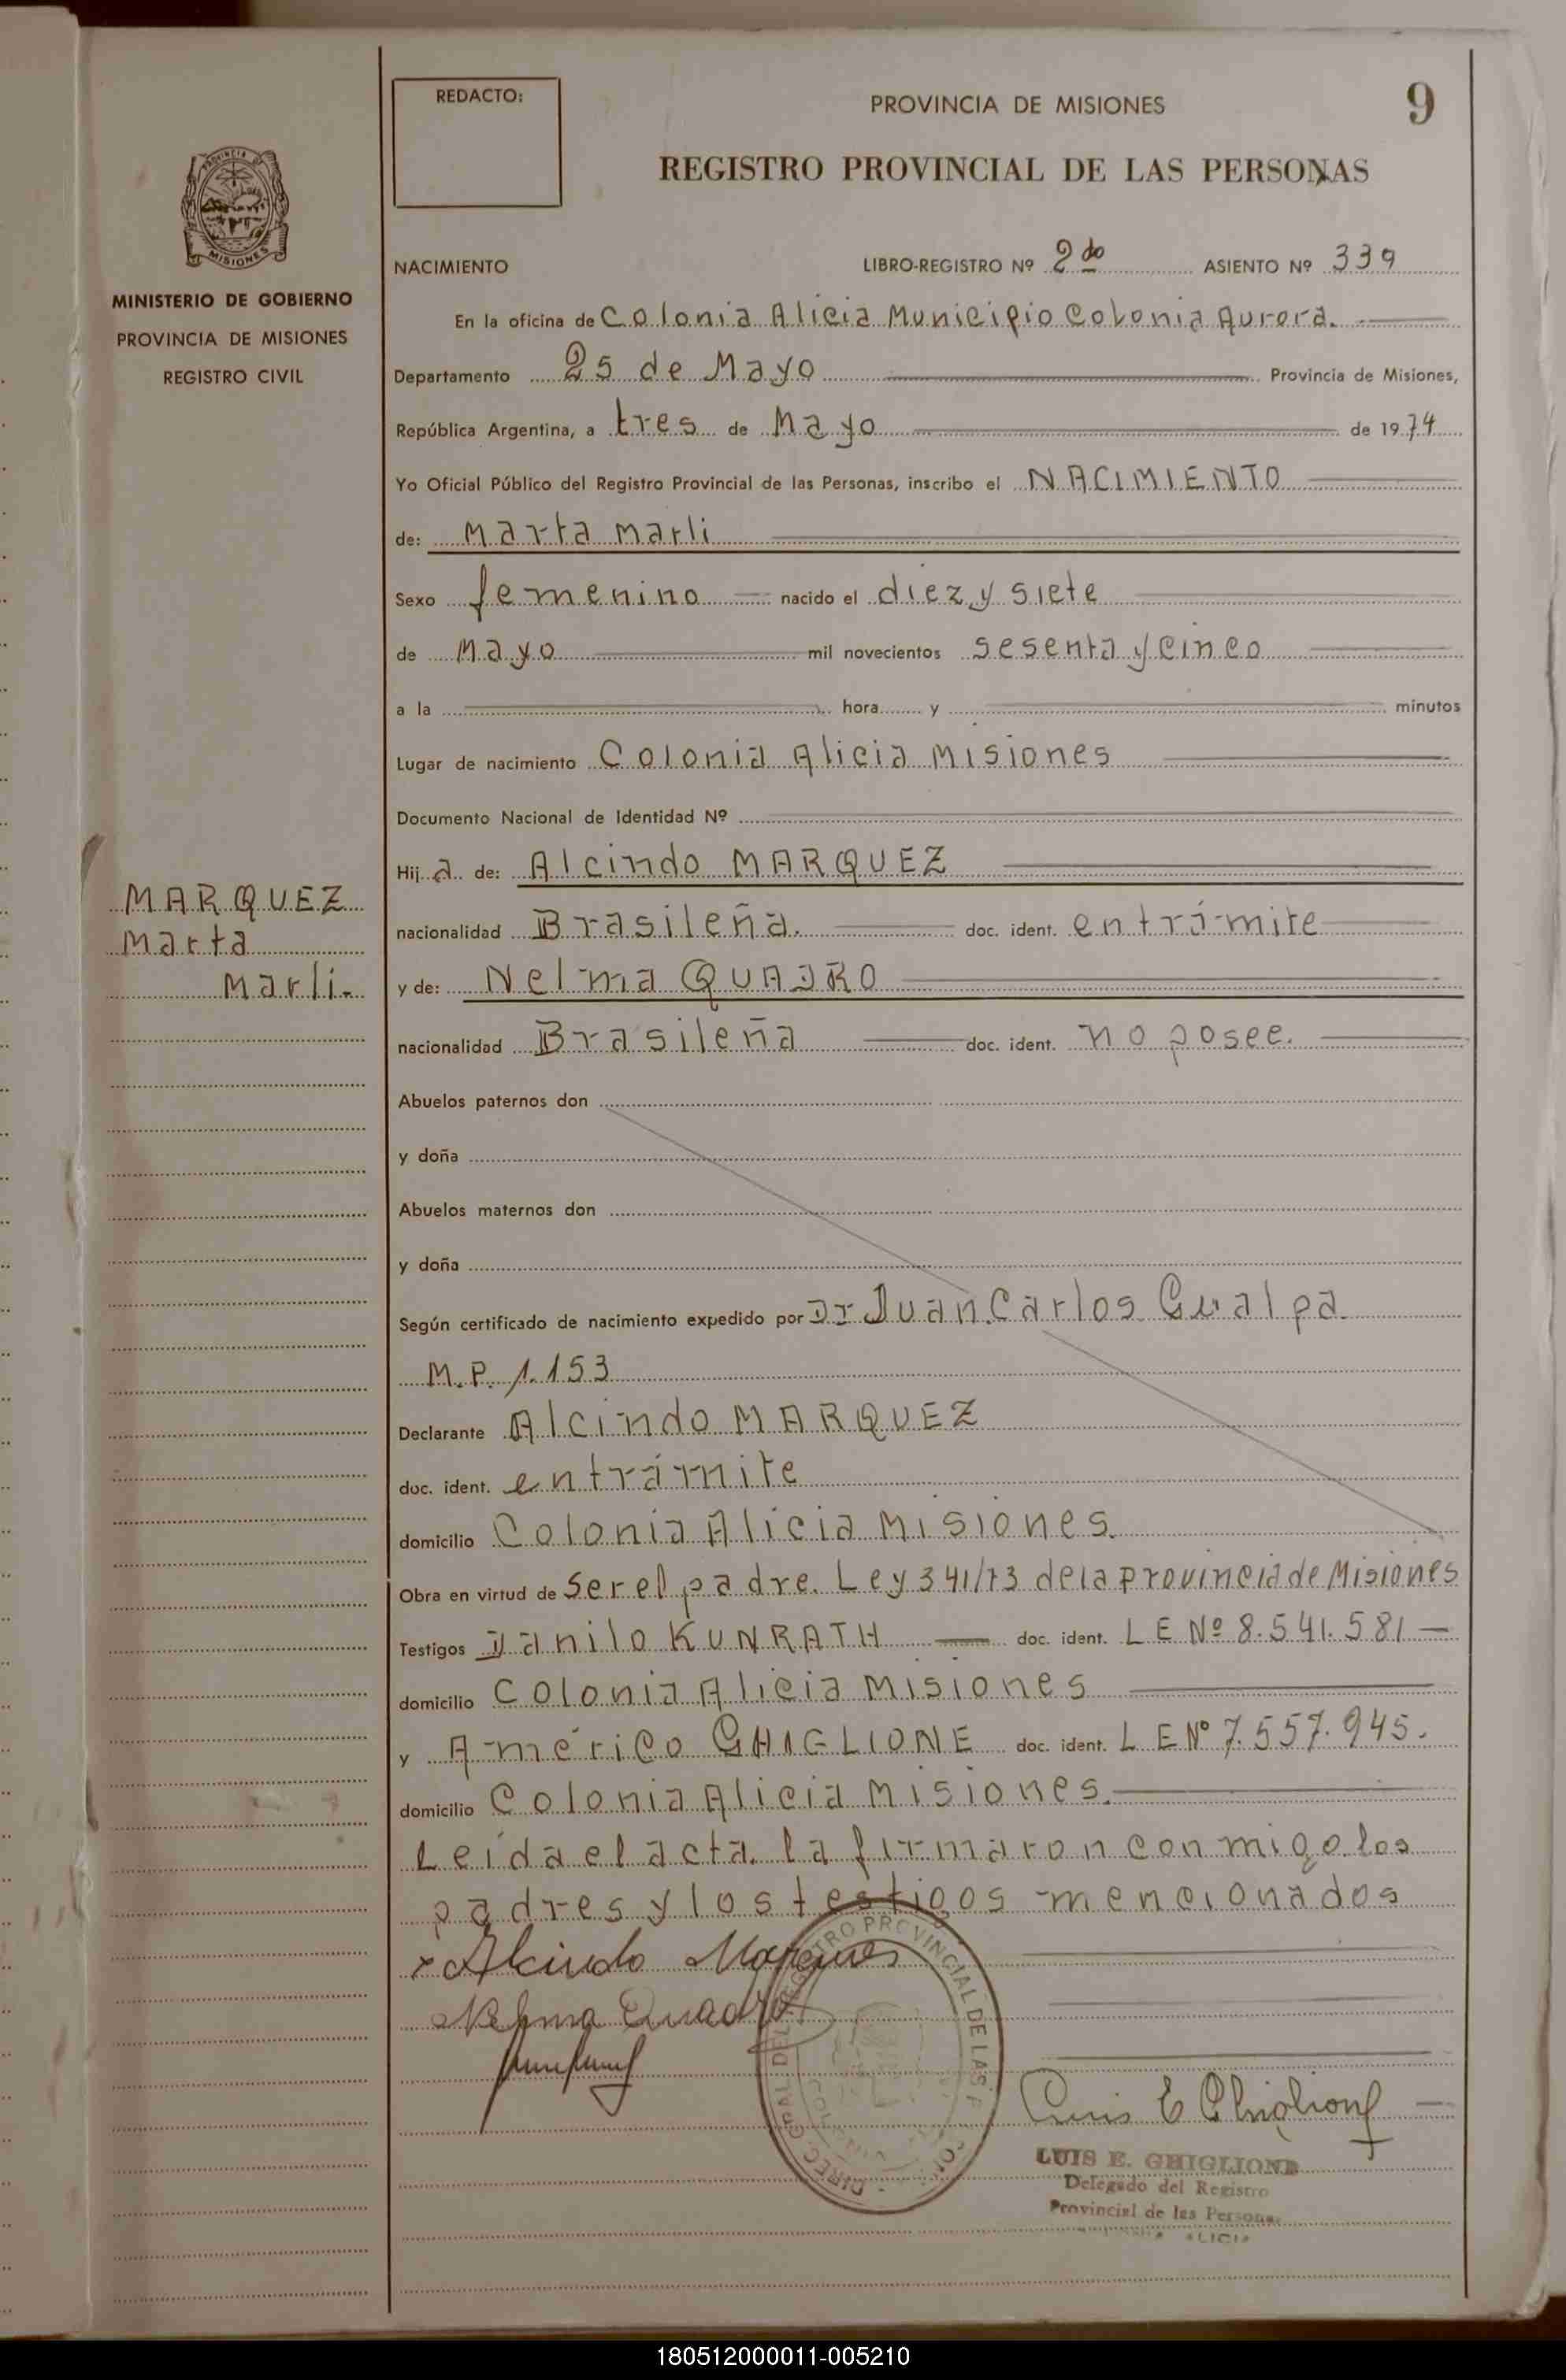 REDACTO:
PROVINCIA DE MISIONES
9
REGISTRO PROVINCIAL DE LAS PERSONAS
MISIONES
MINISTERIO DE GOBIERNO
PROVINCIA DE MISIONES
REGISTRO CIVIL
NACIMIENTO LIBRO-REGISTRO Nº 2do ASIENTO Nº 339
En la oficina de Colonia Alicia Municipio Colonia Aurora.
Departamento 25 de Mayo Provincia de Misiones,
República Argentina, a tres de Mayo de 1974
Yo Oficial Público del Registro Provincial de las Personas, inscribo el NACIMIENTO
de: Marta Marli
Sexo femenino nacido el diez y siete
de Mayo mil novecientos sesenta y cinco
a la hora y minutos
Lugar de nacimiento Colonia Alicia Misiones
Documento Nacional de Identidad Nº
Hija de: Alcindo MARQUEZ
MARQUEZ
Marta
Marli.
nacionalidad Brasileña. doc. ident. en trámite
y de: Nelma QUADRO
nacionalidad Brasileña doc. ident. no posee.
Abuelos paternos don
y doña
Abuelos maternos don
y doña
Según certificado de nacimiento expedido por Dr Juan Carlos Gualpa
M.P. 1.153
Declarante Alcindo MARQUEZ
doc. ident. en trámite
domicilio Colonia Alicia Misiones.
Obra en virtud de Ser el padre. Ley 341/73 de la provincia de Misiones
Testigos Danilo KUNRATH doc. ident. L E Nº 8.541.581
domicilio Colonia Alicia Misiones
y Américo GHIGLIONE doc. ident. L E Nº 7.557.945.
domicilio Colonia Alicia Misiones.
Leída el acta. la firmaron con migo los
padres y los testigos mencionados
x Alcindo Marques
Nelma Quadro
Luis E Ghiglione
LUIS E. GHIGLIONE
Delegado del Registro
Provincial de las Personas
ALICIA
180512000011-005210